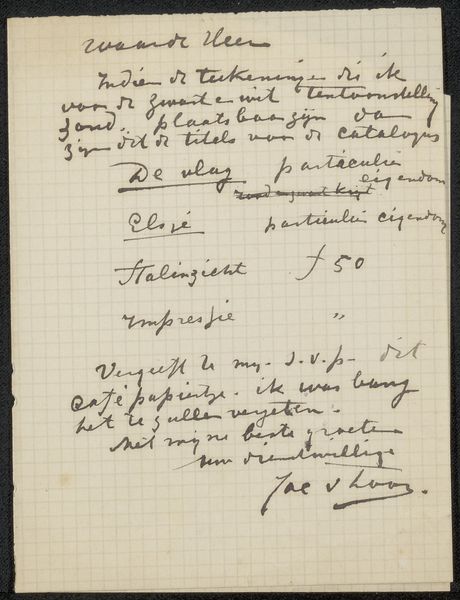 Waarde Heer
Indien de teekeningen die ik
voor de zwart en wit tentoonstelling
zond. plaatsbaar zijn dan
zijn dit de titels voor de catalogus
De vlag particulier
eigendom
Elsje particulier eigendom
Stalinzicht f 50
Impressie "
Vergeeft U my. s.v.p. dit
café papiertje. ik was bang
het te zullen vergeten.
Met myne beste groeten
uw dienstwillige
Jac v Looy.